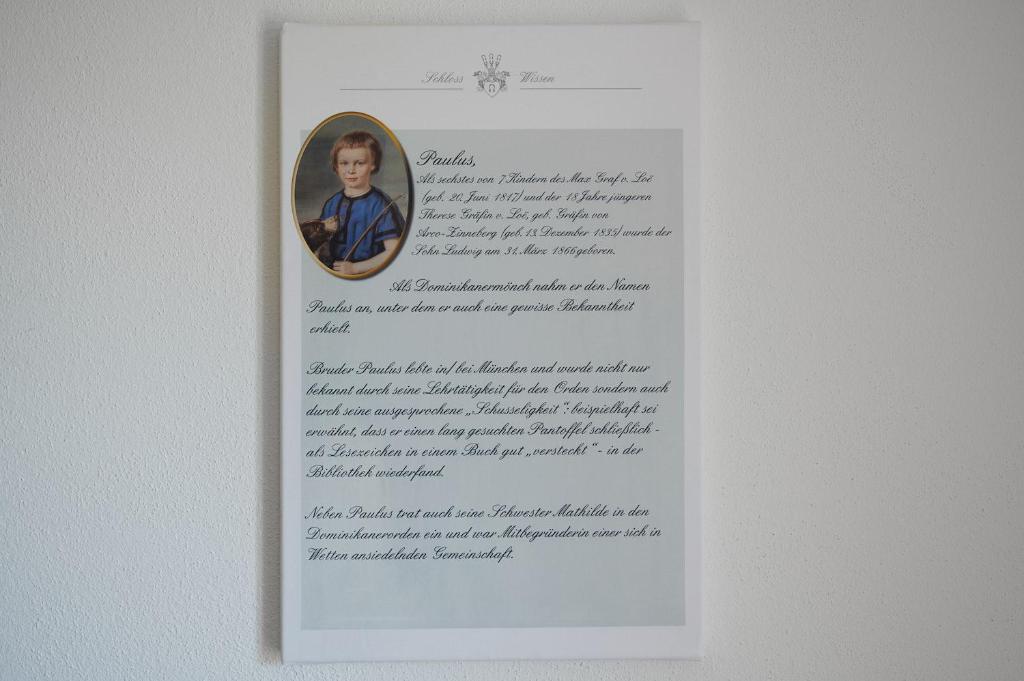 Schloss Wissen
Paulus,
Als sechstes von 7 Kindern des Max Graf v. Loë
(geb. 20. Juni 1817) und der 18 Jahre jüngeren
Therese Gräfin v. Loë, geb. Gräfin von
Arco-Zinneberg (geb. 13. Dezember 1835) wurde der
Sohn Ludwig am 31. März 1866 geboren.
Als Dominikanermönch nahm er den Namen
Paulus an, unter dem er auch eine gewisse Bekanntheit
erhielt.
Bruder Paulus lebte in/ bei München und wurde nicht nur
bekannt durch seine Lehrtätigkeit für den Orden sondern auch
durch seine ausgesprochene „Schusseligkeit“: beispielhaft sei
erwähnt, dass er einen lang gesuchten Pantoffel schließlich -
als Lesezeichen in einem Buch gut „versteckt“ - in der
Bibliothek wiederfand.
Neben Paulus trat auch seine Schwester Mathilde in den
Dominikanerorden ein und war Mitbegründerin einer sich in
Wetten ansiedelnden Gemeinschaft.